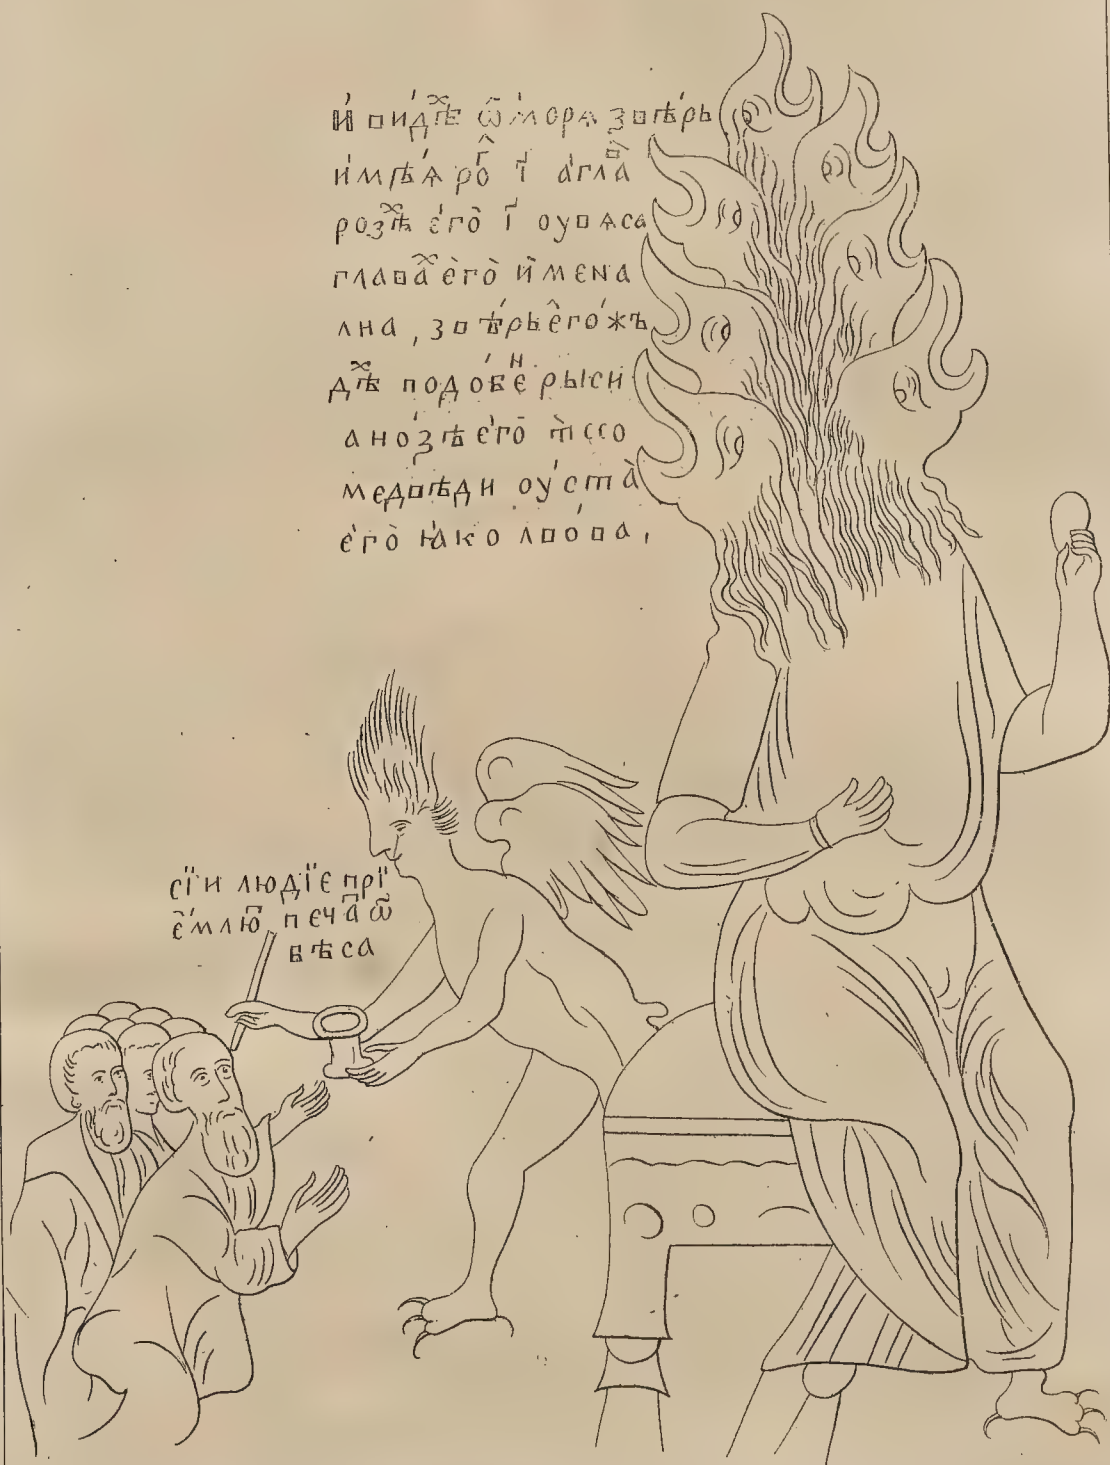 и҆ видѣⷯ ѿ мора звѣрь
имѣѧ роⷢ і҃ а҆ глаⷡ
розѣⷯ є҆го̀ і҃ оувѧса
главаⷯ є҆го̀ и҆мена
лна, звѣрь є҆го́жъ
дѣⷯ подо́бєⷩ рыси
а но́зѣ є҆го̀ ꙗ҆ссо
медвѣди оу҆ста̀
є҆го̀ ꙗ҆ко лво́ва,
сїи людїє прї
є҆млюⷮ пєчаⷮ ѿ
бѣса